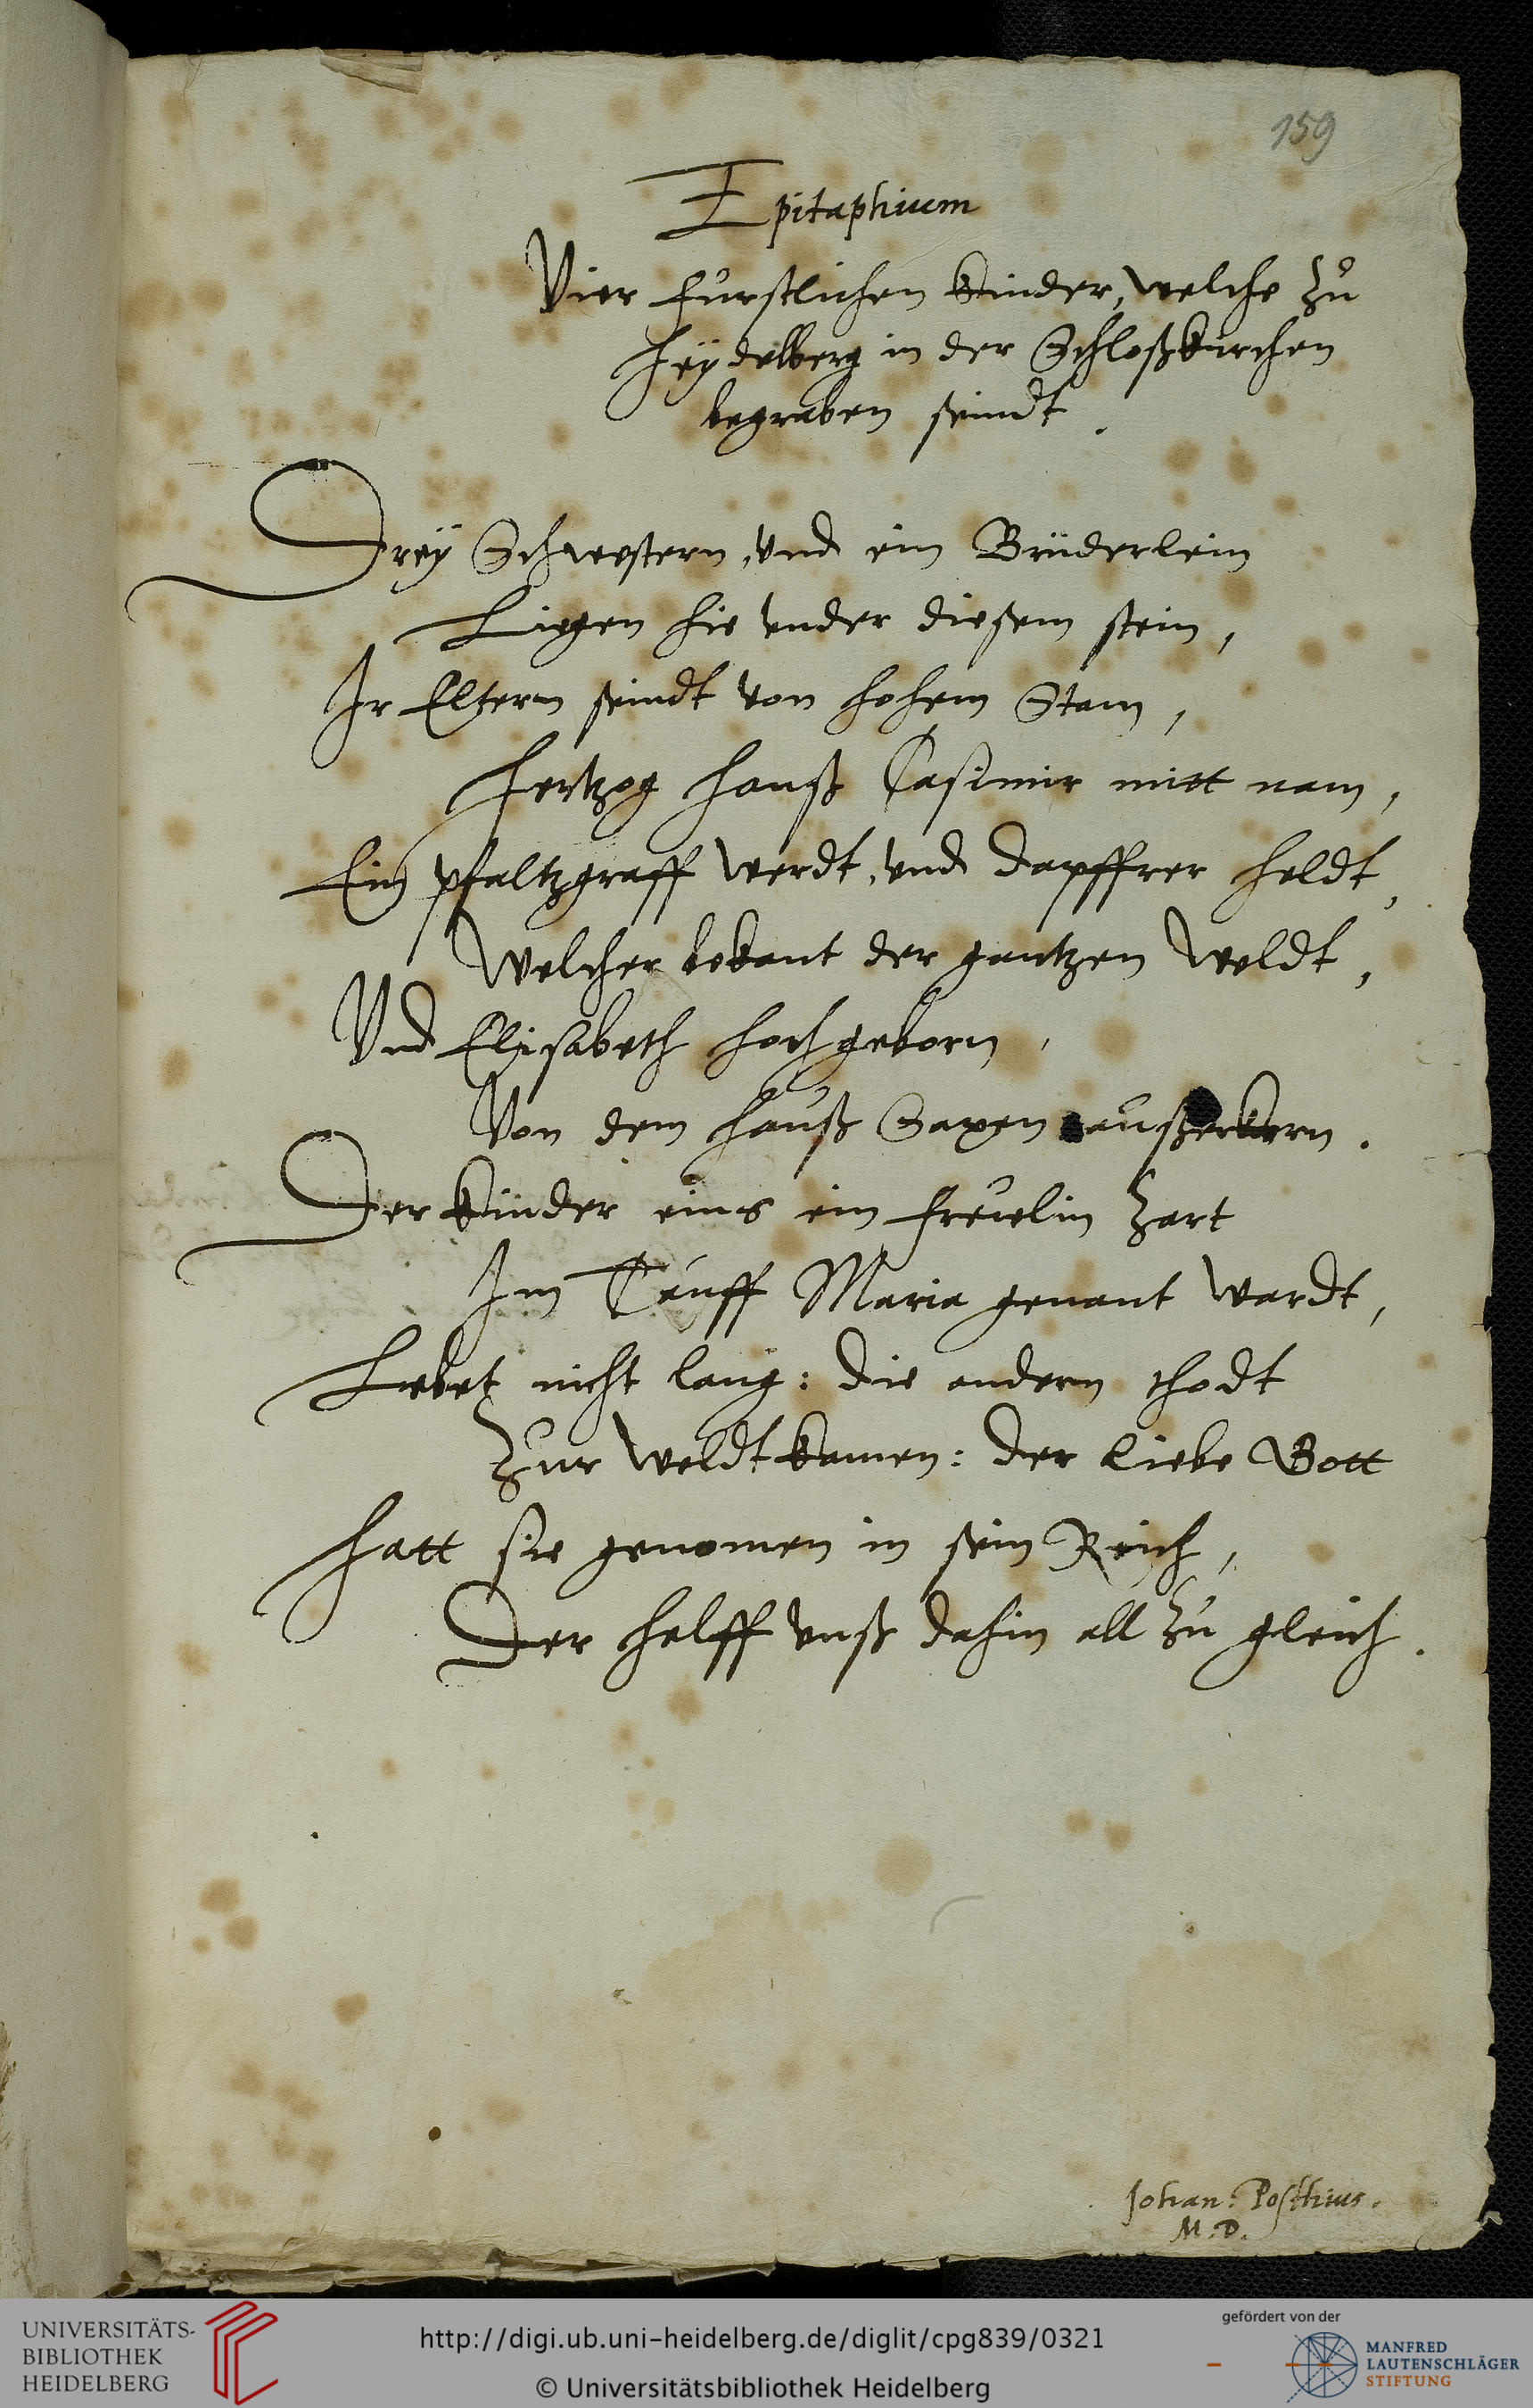 159
Epitaphium
Vier furstlichen kinder, welche zu
Heydelberg in der Schloßkirchen
begraben seindt.
Drey Schwestern, und ein Brüderlein
Ligen hie under diesem stein,
Ir Eltern seindt von hohem Stam,
Hertzog Hanß Casimir mitt nam,
Ein pfaltzgraff werdt, und dapffrer heldt,
Welcher bekant der gantzen Weldt,
Und Elisabeth hochgeborn,
Von dem hauß Saxen außerkorn.
Der kinder eins ein freulin zart
Im Tauff Maria genant wardt,
Lebet nicht lang: die andern thodt
Zur Weldt kamen: der liebe Gott
Hatt sie genomen in sein Reich,
Der helff unß dahin all zu gleich.
Johan: Posthius.
M. D.
UNIVERSITÄTS-
BIBLIOTHEK
HEIDELBERG
http://digi.ub.uni-heidelberg.de/diglit/cpg839/0321
© Universitätsbibliothek Heidelberg
gefördert von der
MANFRED
LAUTENSCHLÄGER
STIFTUNG